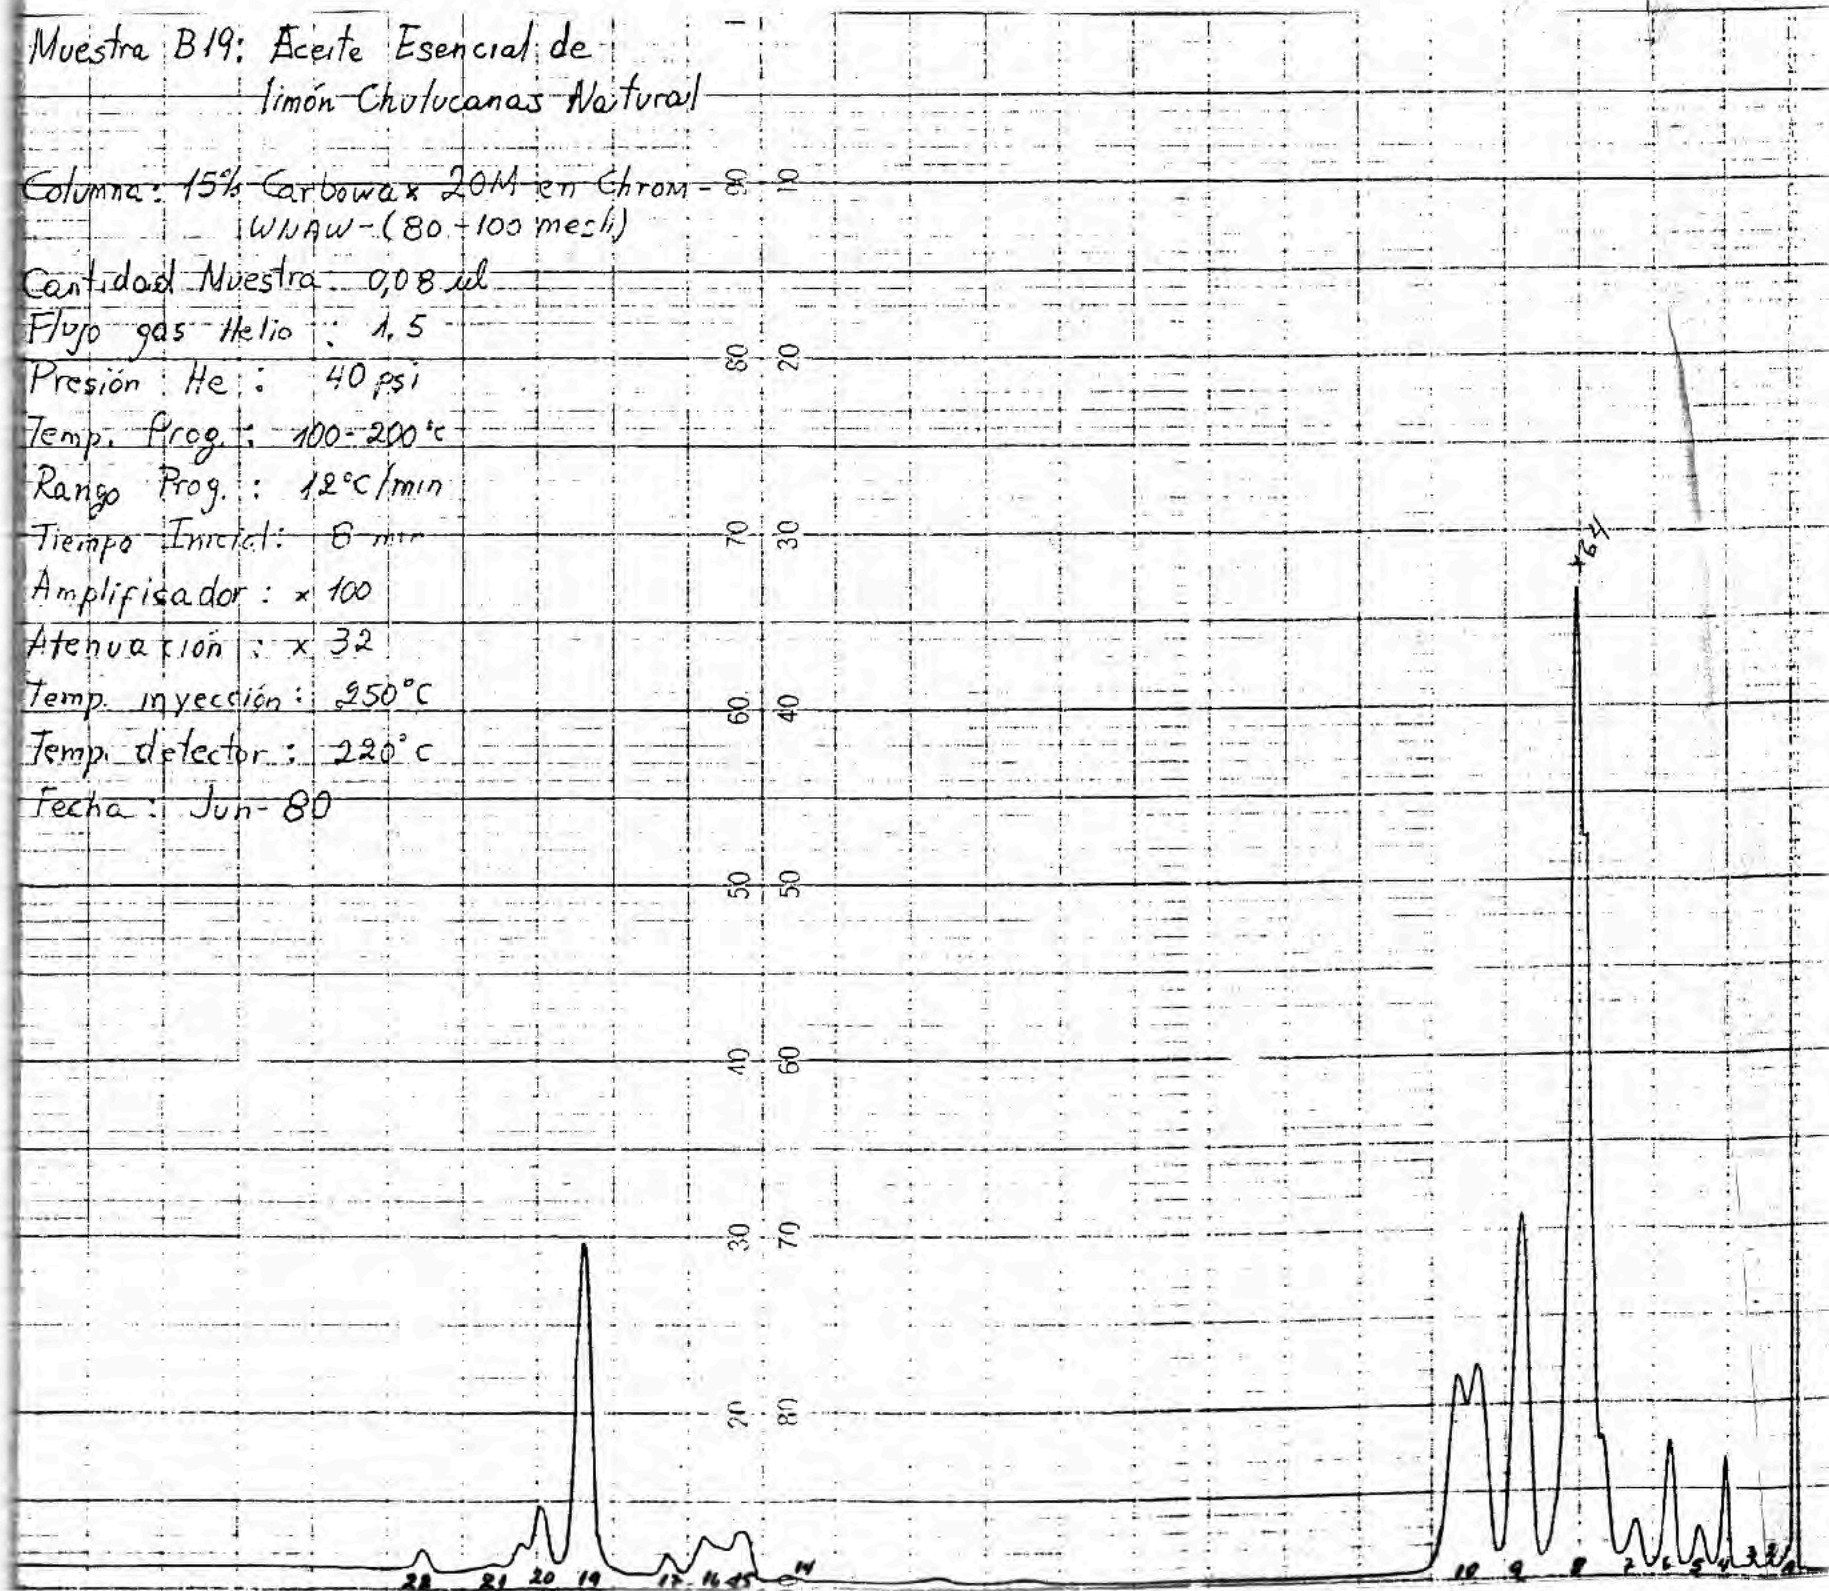 Muestra B19: Aceite Esencial de
limón Chulucanas Natural
Columna: 15% Carbowax 20M en Chrom-
WNAW-(80-100 mesh)
Cantidad Muestra: 0,08 ul
Flujo gas Helio: 1,5
Presión He: 40 psi
Temp. Prog.: 100-200°c
Rango Prog.: 12°C/min
Tiempo Inicial: 6 min
Amplifisador: x 100
Atenuación: x 32
Temp. inyección: 250°C
Temp. detector: 220°C
Fecha: Jun-80
80 20
70 30
x64
60 40
50 50
40 60
30 70
20 80
22 21 20 19 17 16 15 14 10 9 8 7 6 5 4 3 2 1